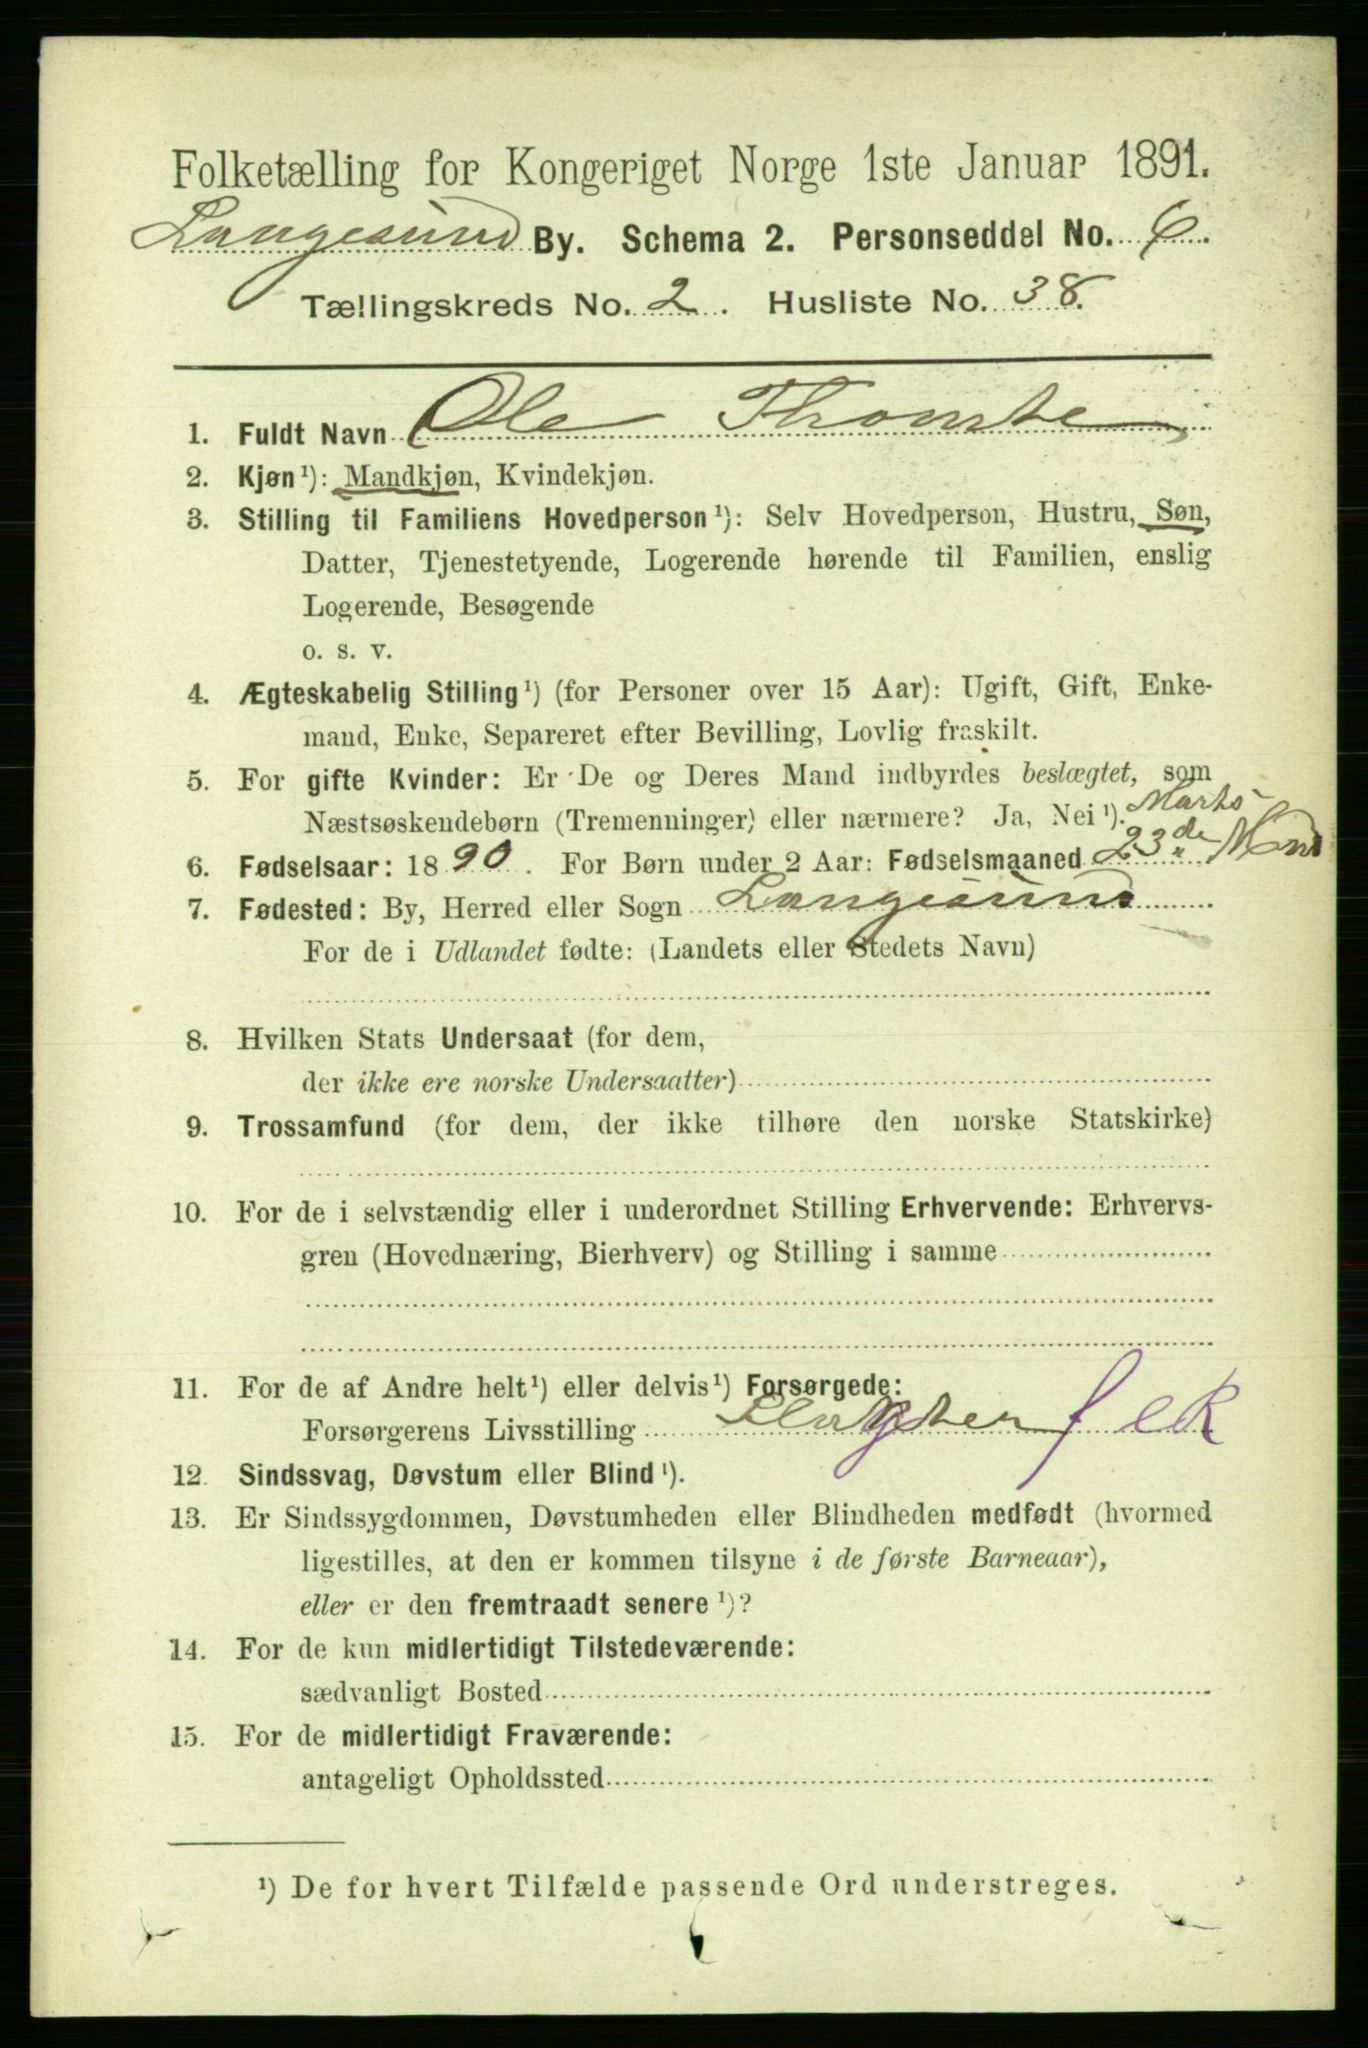 Folketælling for Kongeriget Norge 1ste Januar 1891.
Langesund By. Schema 2. Personseddel No. 6.
Tællingskreds No. 2. Husliste No. 38.
1. Fuldt Navn Ole Thomte
2. Kjøn ¹): Mandkjøn, Kvindekjøn.
3. Stilling til Familiens Hovedperson ¹): Selv Hovedperson, Hustru, Søn,
Datter, Tjenestetyende, Logerende hørende til Familien, enslig
Logerende, Besøgende
o. s. v.
4. Ægteskabelig Stilling ¹) (for Personer over 15 Aar): Ugift, Gift, Enke-
mand, Enke, Separeret efter Bevilling, Lovlig fraskilt.
5. For gifte Kvinder: Er De og Deres Mand indbyrdes beslægtet, som
Næstsøskendebørn (Tremenninger) eller nærmere? Ja, Nei ¹).
Marts
6. Fødselsaar: 1890. For Børn under 2 Aar: Fødselsmaaned 23de
7. Fødested: By, Herred eller Sogn Langesund
For de i Udlandet fødte: (Landets eller Stedets Navn)
8. Hvilken Stats Undersaat (for dem,
der ikke ere norske Undersaatter)
9. Trossamfund (for dem, der ikke tilhøre den norske Statskirke)
10. For de i selvstændig eller i underordnet Stilling Erhvervende: Erhvervs-
gren (Hovednæring, Bierhverv) og Stilling i samme
11. For de af Andre helt ¹) eller delvis ¹) Forsørgede:
Forsørgerens Livsstilling
12. Sindssvag, Døvstum eller Blind ¹).
13. Er Sindssygdommen, Døvstumheden eller Blindheden medfødt (hvormed
ligestilles, at den er kommen tilsyne i de første Barneaar),
eller er den fremtraadt senere ¹)?
14. For de kun midlertidigt Tilstedeværende:
sædvanligt Bosted
15. For de midlertidigt Fraværende:
antageligt Opholdssted
¹) De for hvert Tilfælde passende Ord understreges.